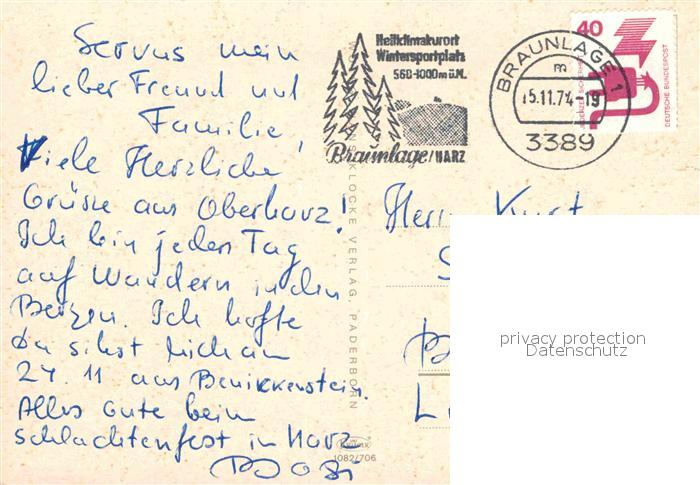 Servus mein
lieber Freund und
Familie!
Viele Herzliche
Grüsse aus Oberharz!
Ich bin jeden Tag
auf Wandern in den
Bergen. Ich hoffe
Du sihst mich am
24. 11 aus Benikkenstein.
Alles Gute beim
schlachtenfest in Harz
Heilklimakurort
Wintersportplatz
560-1000m ü.M.
Braunlage/HARZ
BRAUNLAGE 1
m
15.11.74-19
3389
40
JEDERZEIT SICHERHEIT
DEUTSCHE BUNDESPOST
KLOCKE VERLAG, PADERBORN
1082/706
Herrn Kurt
S
B
L
privacy protection
Datenschutz